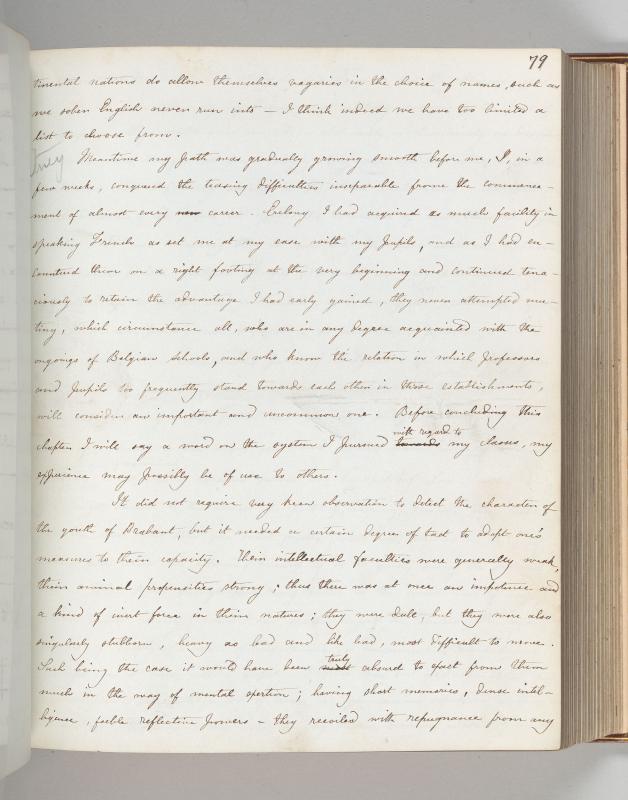 79
tinental nations do allow themselves vagaries in the choice of names, such as
we sober English never run into — I think indeed we have too limited a
list to choose from.
Meantime my path was gradually growing smooth before me, I, in a
few weeks, conquered the teasing difficulties inseparable from the commence-
ment of almost every new career. Erelong I had acquired as much facility in
speaking French as set me at my ease with my pupils, and as I had en-
countered them on a right footing at the very beginning and continued tena-
ciously to retain the advantage I had early gained, they never attempted mu-
tiny, which circumstance all, who are in any degree acquainted with the
ongoings of Belgian schools, and who know the relation in which professors
and pupils too frequently stand towards each other in those establishments,
will consider an important and uncommon one. Before concluding this
with regard to
chapter I will say a word on the system I pursued towards my classes, my
experience may possibly be of use to others.
It did not require very keen observation to detect the character of
the youth of Brabant, but it needed a certain degree of tact to adopt one's
measures to their capacity. Their intellectual faculties were generally weak,
their animal propensities strong; thus there was at once an impotence and
a kind of inert force in their natures; they were dull, but they were also
singularly stubborn, heavy as lead and like lead, most difficult to move.
truly
Such being the case it would have been most absurd to exact from them
much in the way of mental exertion; having short memories, dense intel-
ligence, feeble reflective powers — they recoiled with repugnance from any